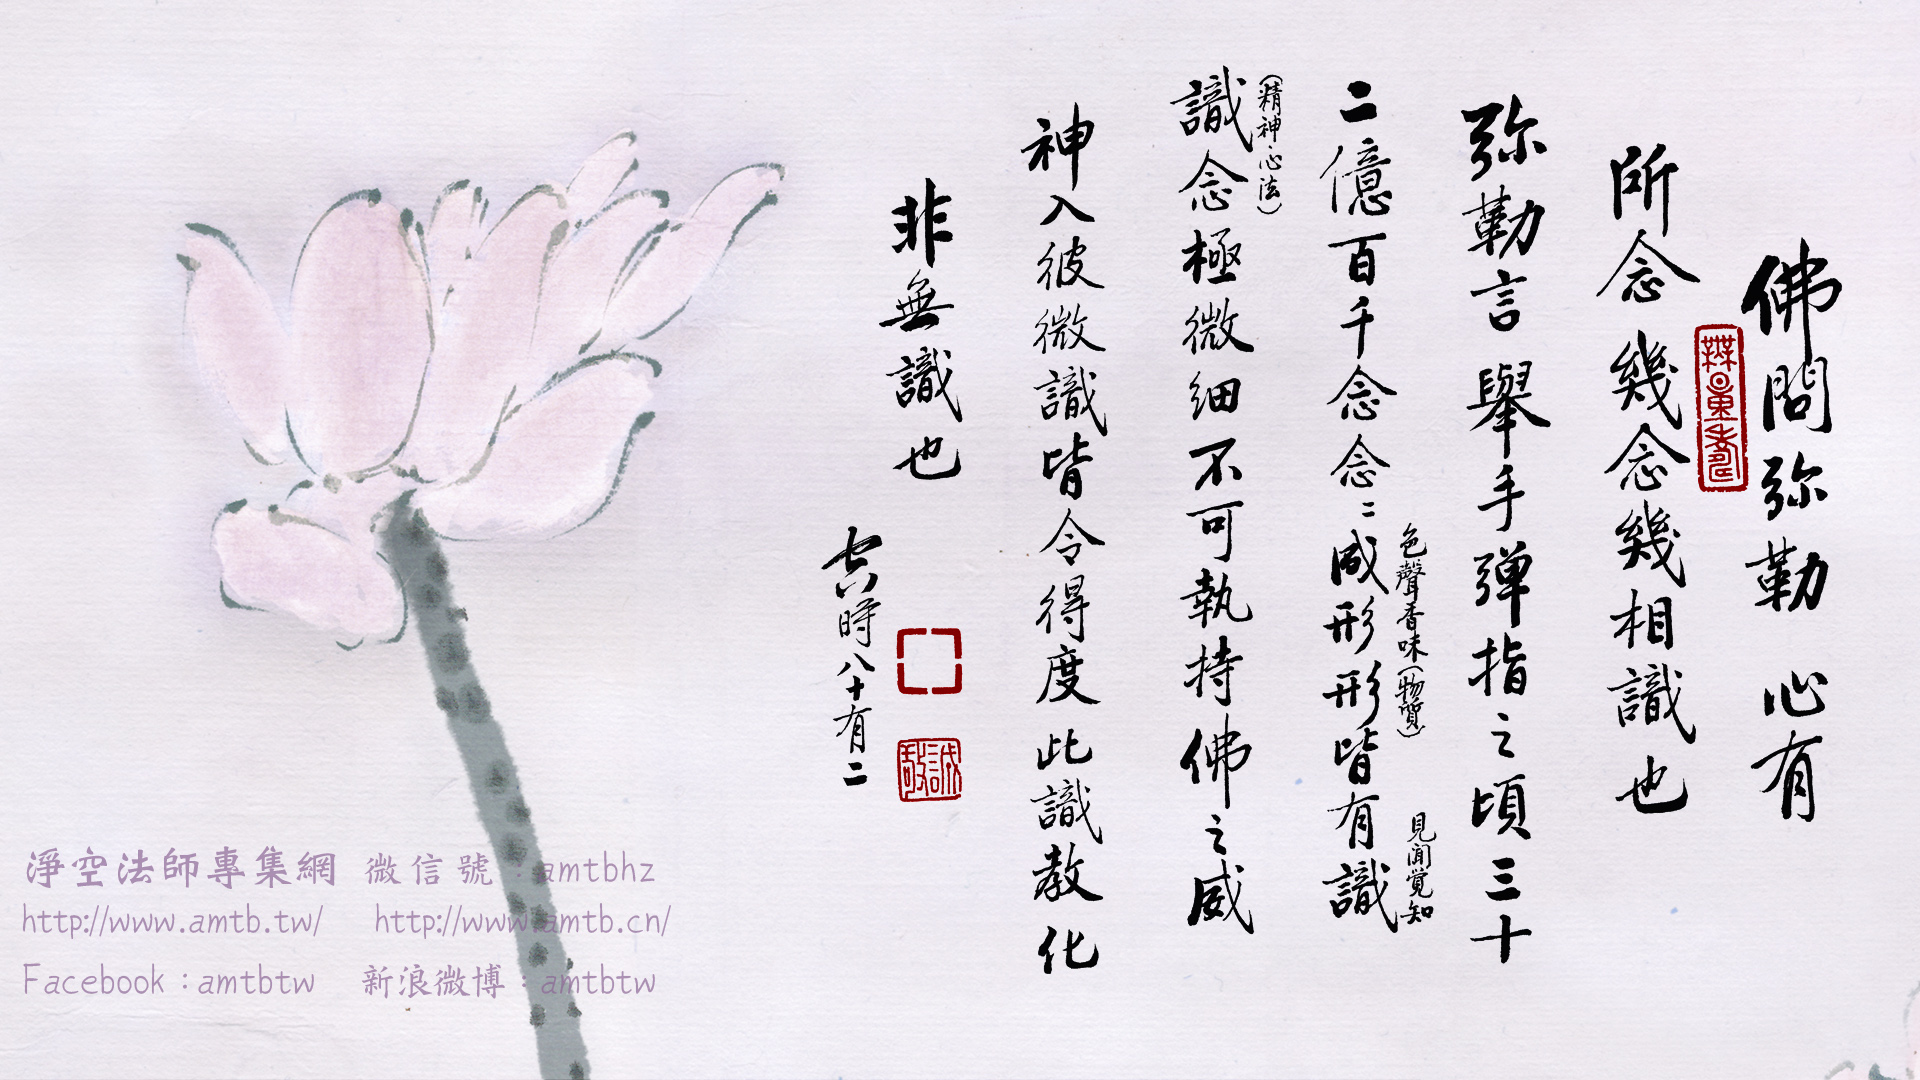 佛問弥勒 心有
所念幾念幾相識也
弥勒言 舉手彈指之頃三十
二億百千念念:咸形形皆有識
色聲香味(物質)
見聞覺知
識念極微細不可執持佛之威
(精神心法)
神入彼微識皆令得度此識教化
非無識也
時八十有二
無量壽
誠敬
淨空法師專集網 微信號：amtbhz
http://www.amtb.tw/ http://www.amtb.cn/
Facebook：amtbtw 新浪微博：amtbtw